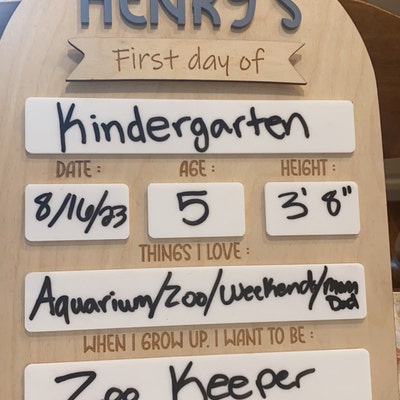 HENRY'S
First day of
Kindergarten
DATE : AGE : HEIGHT :
8/16/23 5 3' 8"
THINGS I LOVE :
Aquarium/Zoo/Weekends/Mom
Dad
WHEN I GROW UP, I WANT TO BE :
Zoo Keeper